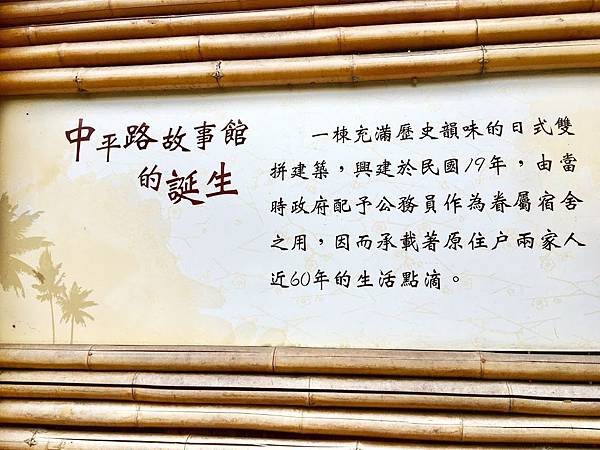 中平路故事館
的誕生
一棟充滿歷史韻味的日式雙
拼建築，興建於民國19年，由當
時政府配予公務員作為眷屬宿舍
之用，因而承載著原住戶兩家人
近60年的生活點滴。